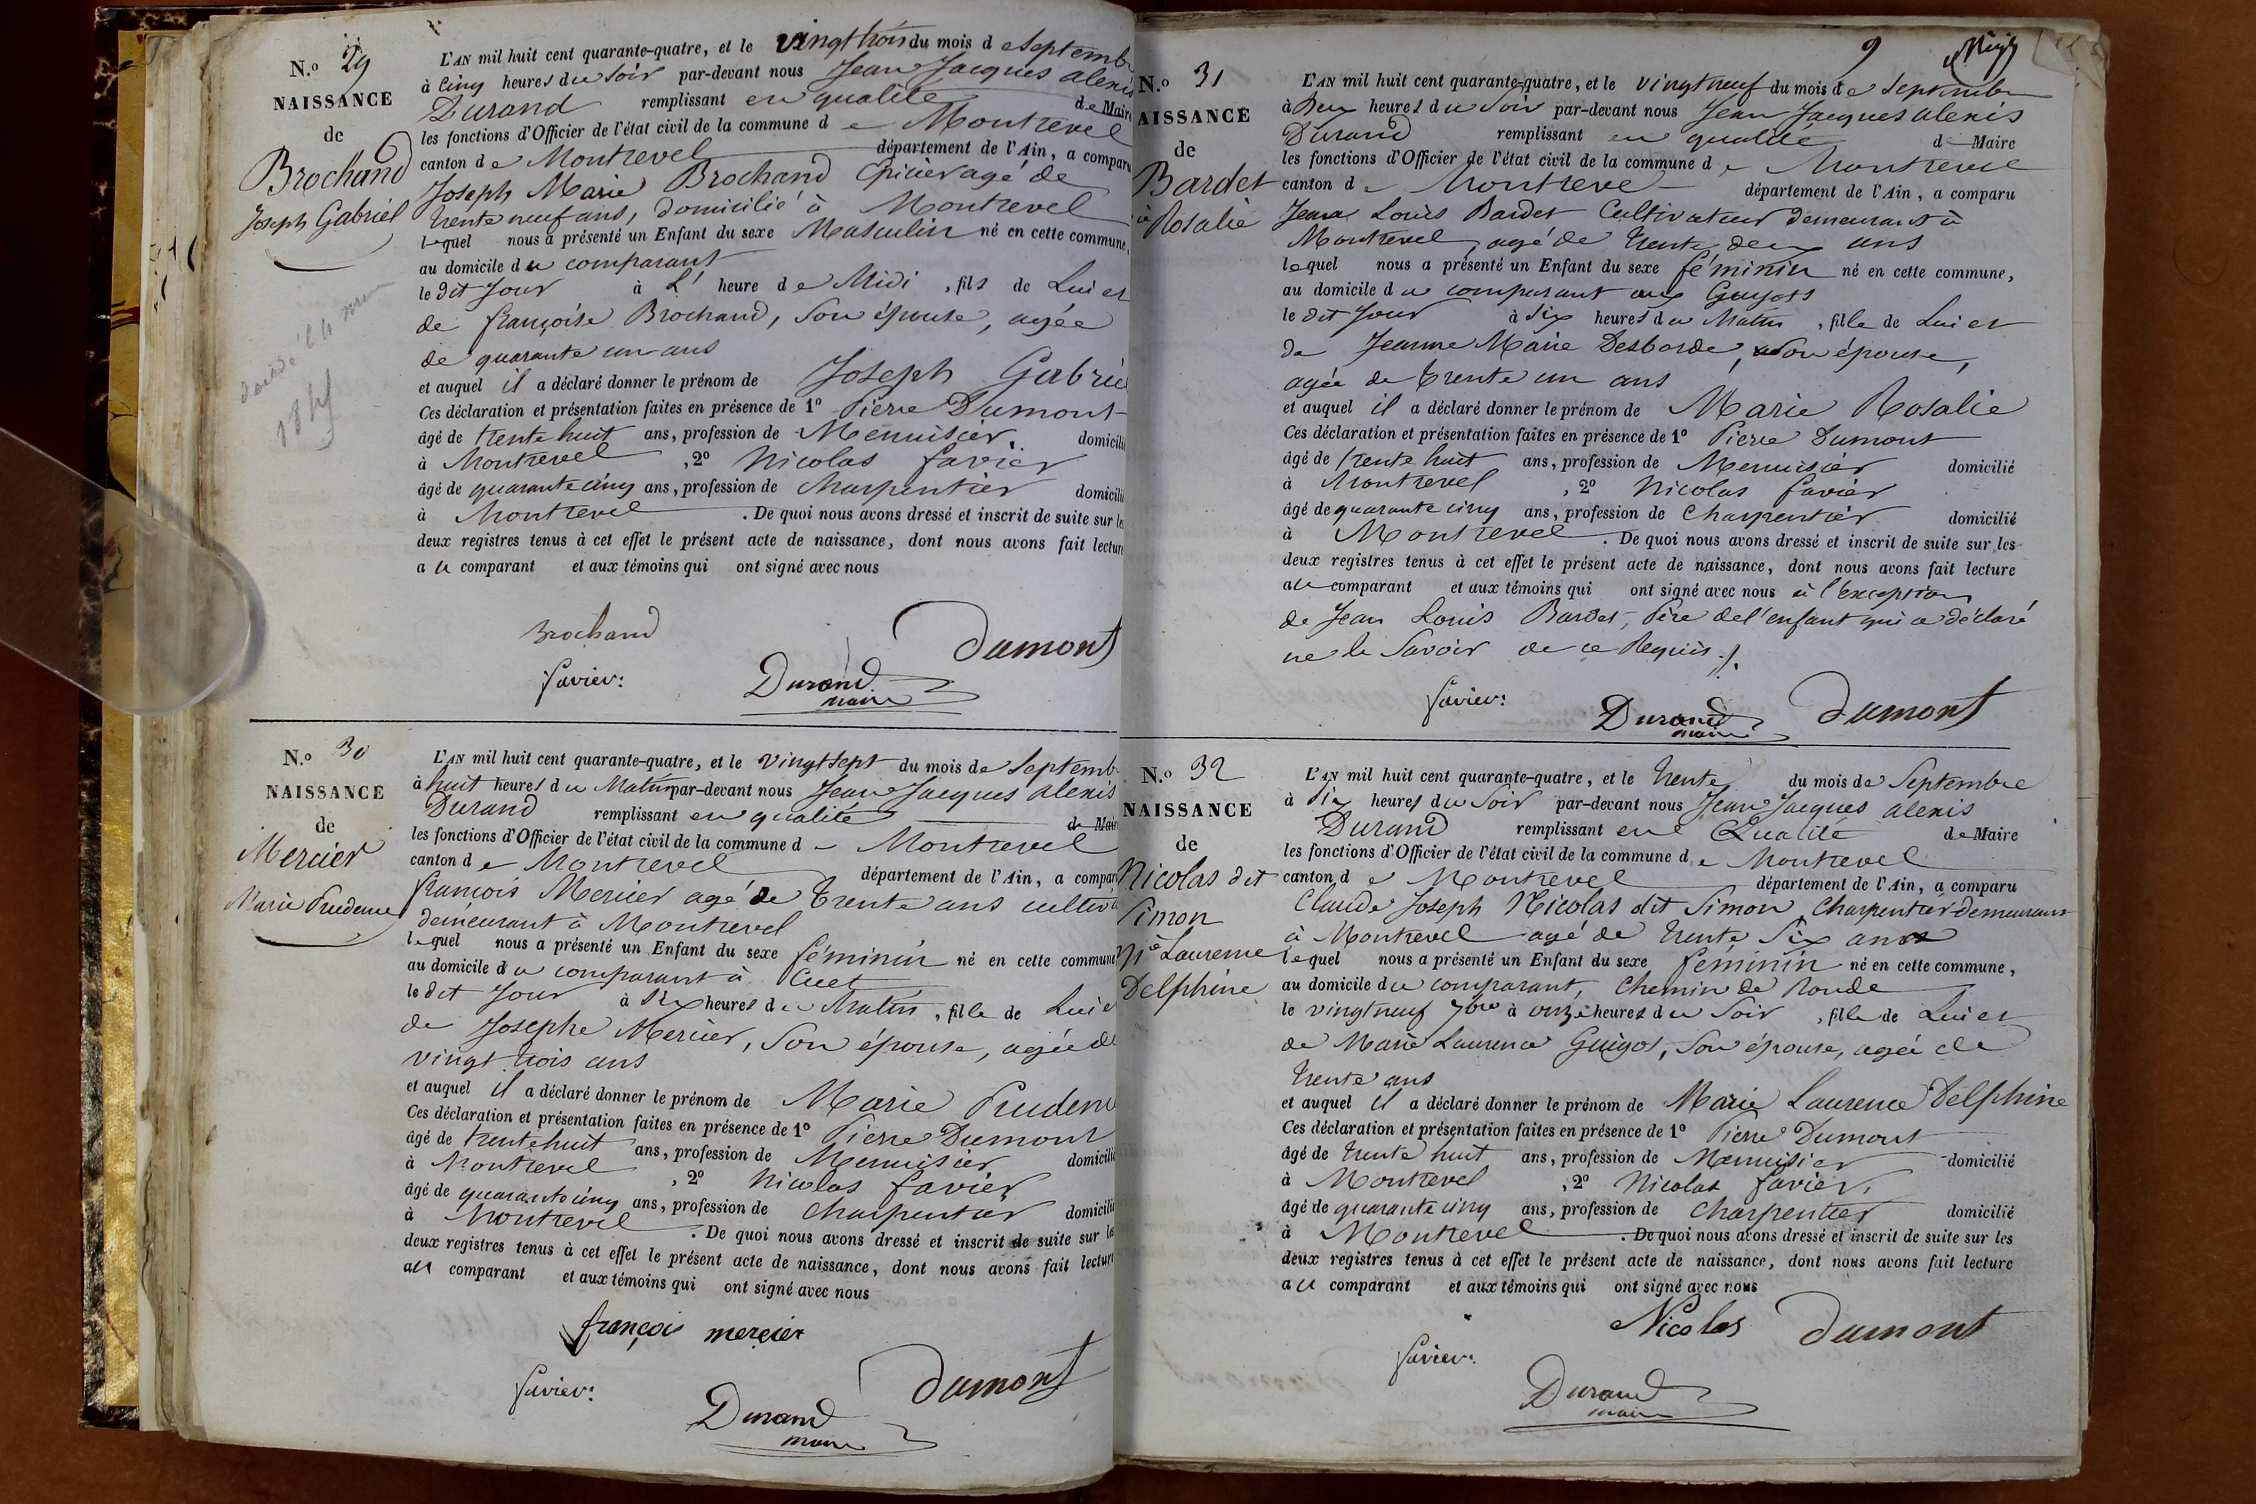 N.o 29
NAISSANCE
de
Brochand
Joseph Gabriel
L'AN mil huit cent quarante-quatre, et le vingt trois du mois d e Septemb
à Cinq heures du Soir par-devant nous Jean Jacques alexis
Durand remplissant en qualité de Maire
les fonctions d'Officier de l'état civil de la commune d e Montrevel
canton d e Montrevel département de l'Ain, a comparu
Joseph Marie Brochand Epicier agé de
trente neuf ans, domicilié à Montrevel
lequel nous a présenté un Enfant du sexe Masculin né en cette commune,
au domicile du comparant
le dit Jour à L' heure d e Midi , fils de Lui et
de françoise Brochand, Son épouse, agée
de quarante un ans
et auquel il a déclaré donner le prénom de Joseph Gabriel
Ces déclaration et présentation faites en présence de 1o Pierre Dumont
âgé de trente huit ans, profession de Menuisier, domicilié
à Montrevel , 2o Nicolas favier
âgé de quarante cinq ans, profession de charpentier domicilié
à Montrevel . De quoi nous avons dressé et inscrit de suite sur les
deux registres tenus à cet effet le présent acte de naissance, dont nous avons fait lecture
a u comparant et aux témoins qui ont signé avec nous
Brochand
Dumont
favier:
Durand
maire
N.o 30
NAISSANCE
de
Mercier
Marie Prudence
L'AN mil huit cent quarante-quatre, et le vingt sept du mois de Septemb
à huit heures du Matin par-devant nous Jean Jacques alexis
Durand remplissant en qualité de Maire
les fonctions d'Officier de l'état civil de la commune d e Montrevel
canton d e Montrevel département de l'Ain, a comparu
françois Mercier agé de trente ans cultiv
demeurant à Montrevel
lequel nous a présenté un Enfant du sexe féminin né en cette commune
au domicile du comparant à Cuet
le dit Jour à Six heures du Matin , fille de Lui et
de Josephe Mercier, Son épouse, agée de
vingt trois ans
et auquel il a déclaré donner le prénom de Marie Prudence
Ces déclaration et présentation faites en présence de 1o Pierre Dumont
âgé de trente huit ans, profession de Menuisier domicilié
à Montrevel , 2o Nicolas favier
âgé de quarante cinq ans, profession de charpentier domicilié
à Montrevel . De quoi nous avons dressé et inscrit de suite sur les
deux registres tenus à cet effet le présent acte de naissance, dont nous avons fait lecture
au comparant et aux témoins qui ont signé avec nous
françois mercier
favier:
Dumont
Durand
maire
9
N.o 31
NAISSANCE
de
Bardet
Rosalie
L'AN mil huit cent quarante-quatre, et le vingt neuf du mois de Septembre
à Deux heures du Soir par-devant nous Jean Jacques alexis
Durand remplissant en qualité de Maire
les fonctions d'Officier de l'état civil de la commune d e Montrevel
canton d e Montrevel département de l'Ain, a comparu
Jean Louis Bardet Cultivateur demeurant à
Montrevel, agé de trente deux ans
lequel nous a présenté un Enfant du sexe féminin né en cette commune,
au domicile du comparant aux Guyots
le dit Jour à Six heures du Matin , fille de Lui et
de Jeanne Marie Desborde, Son épouse,
agée de trente un ans
et auquel il a déclaré donner le prénom de Marie Rosalie
Ces déclaration et présentation faites en présence de 1o Pierre Dumont
âgé de trente huit ans, profession de Menuisier domicilié
à Montrevel , 2o Nicolas favier
âgé de quarante cinq ans, profession de Charpentier domicilié
à Montrevel . De quoi nous avons dressé et inscrit de suite sur les
deux registres tenus à cet effet le présent acte de naissance, dont nous avons fait lecture
au comparant et aux témoins qui ont signé avec nous à l'exception
de Jean Louis Bardet, Père de l'enfant qui a déclaré
ne le Savoir de ce Requis ./.
favier:
Durand
maire
Dumont
N.o 32
NAISSANCE
de
Nicolas dit
Simon
Mie Laurence
Delphine
L'AN mil huit cent quarante-quatre, et le trente du mois de Septembre
à Six heures du Soir par-devant nous Jean Jacques alexis
Durand remplissant en Qualité de Maire
les fonctions d'Officier de l'état civil de la commune d e Montrevel
canton d e Montrevel département de l'Ain, a comparu
Claude Joseph Nicolas dit Simon Charpentier demeurant
à Montrevel agé de trente Six ans
lequel nous a présenté un Enfant du sexe féminin né en cette commune,
au domicile du comparant, Chemin de Ronde
le vingt neuf 7bre à onze heures du Soir , fille de Lui et
de Marie Laurence Guigot, Son épouse, agée de
trente ans
et auquel il a déclaré donner le prénom de Marie Laurence Delphine
Ces déclaration et présentation faites en présence de 1o Pierre Dumont
âgé de trente huit ans, profession de Menuisier domicilié
à Montrevel , 2o Nicolas favier,
âgé de quarante cinq ans, profession de charpentier domicilié
à Montrevel . De quoi nous avons dressé et inscrit de suite sur les
deux registres tenus à cet effet le présent acte de naissance, dont nous avons fait lecture
a u comparant et aux témoins qui ont signé avec nous
Nicolas Dumont
favier:
Durand
maire